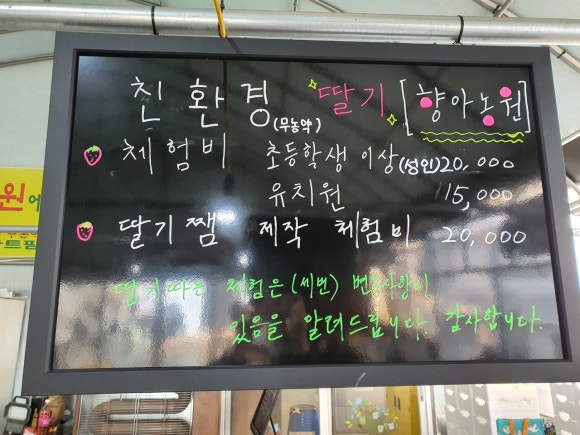 친환경 (무농약) 딸기 [향아농원]
체험비 초등학생 이상 (성인) 20,000
유치원 15,000
딸기쨈 제작 체험비 20,000
딸기따는 체험은 (세번) 변동사항이
있음을 알려드립니다. 감사합니다.
원에